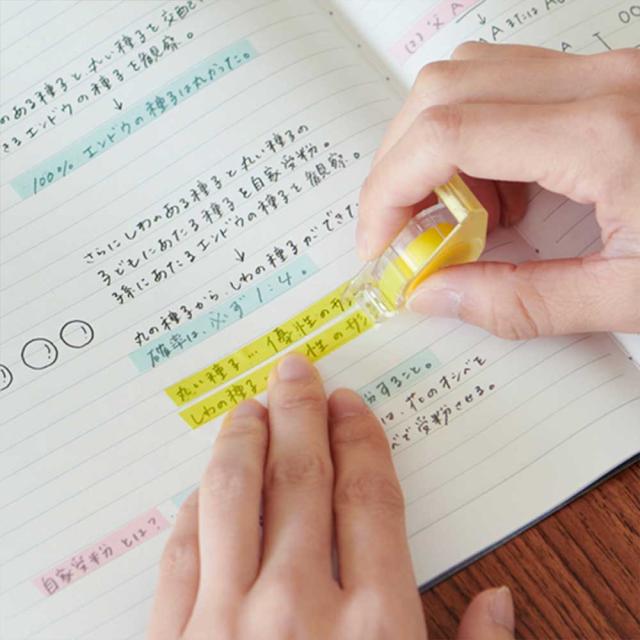 のある種子と丸い種子と交配
さるエンドウの種子を観察。
↓
100% エンドウの種子は丸かった。
さらにしわのある種子と丸い種子の
子どもにあたる種子を自家受粉。
孫にあたるエンドウの種子を観察。
↓
丸の種子から、しわの種子ができて
確率は、必ず1:4。
丸い種子… 優性の
しわの種子 性の
すること。
は、花のオシベを
べで受粉させる。
自家受粉とは?
(1) 父A
↓
A または A
A